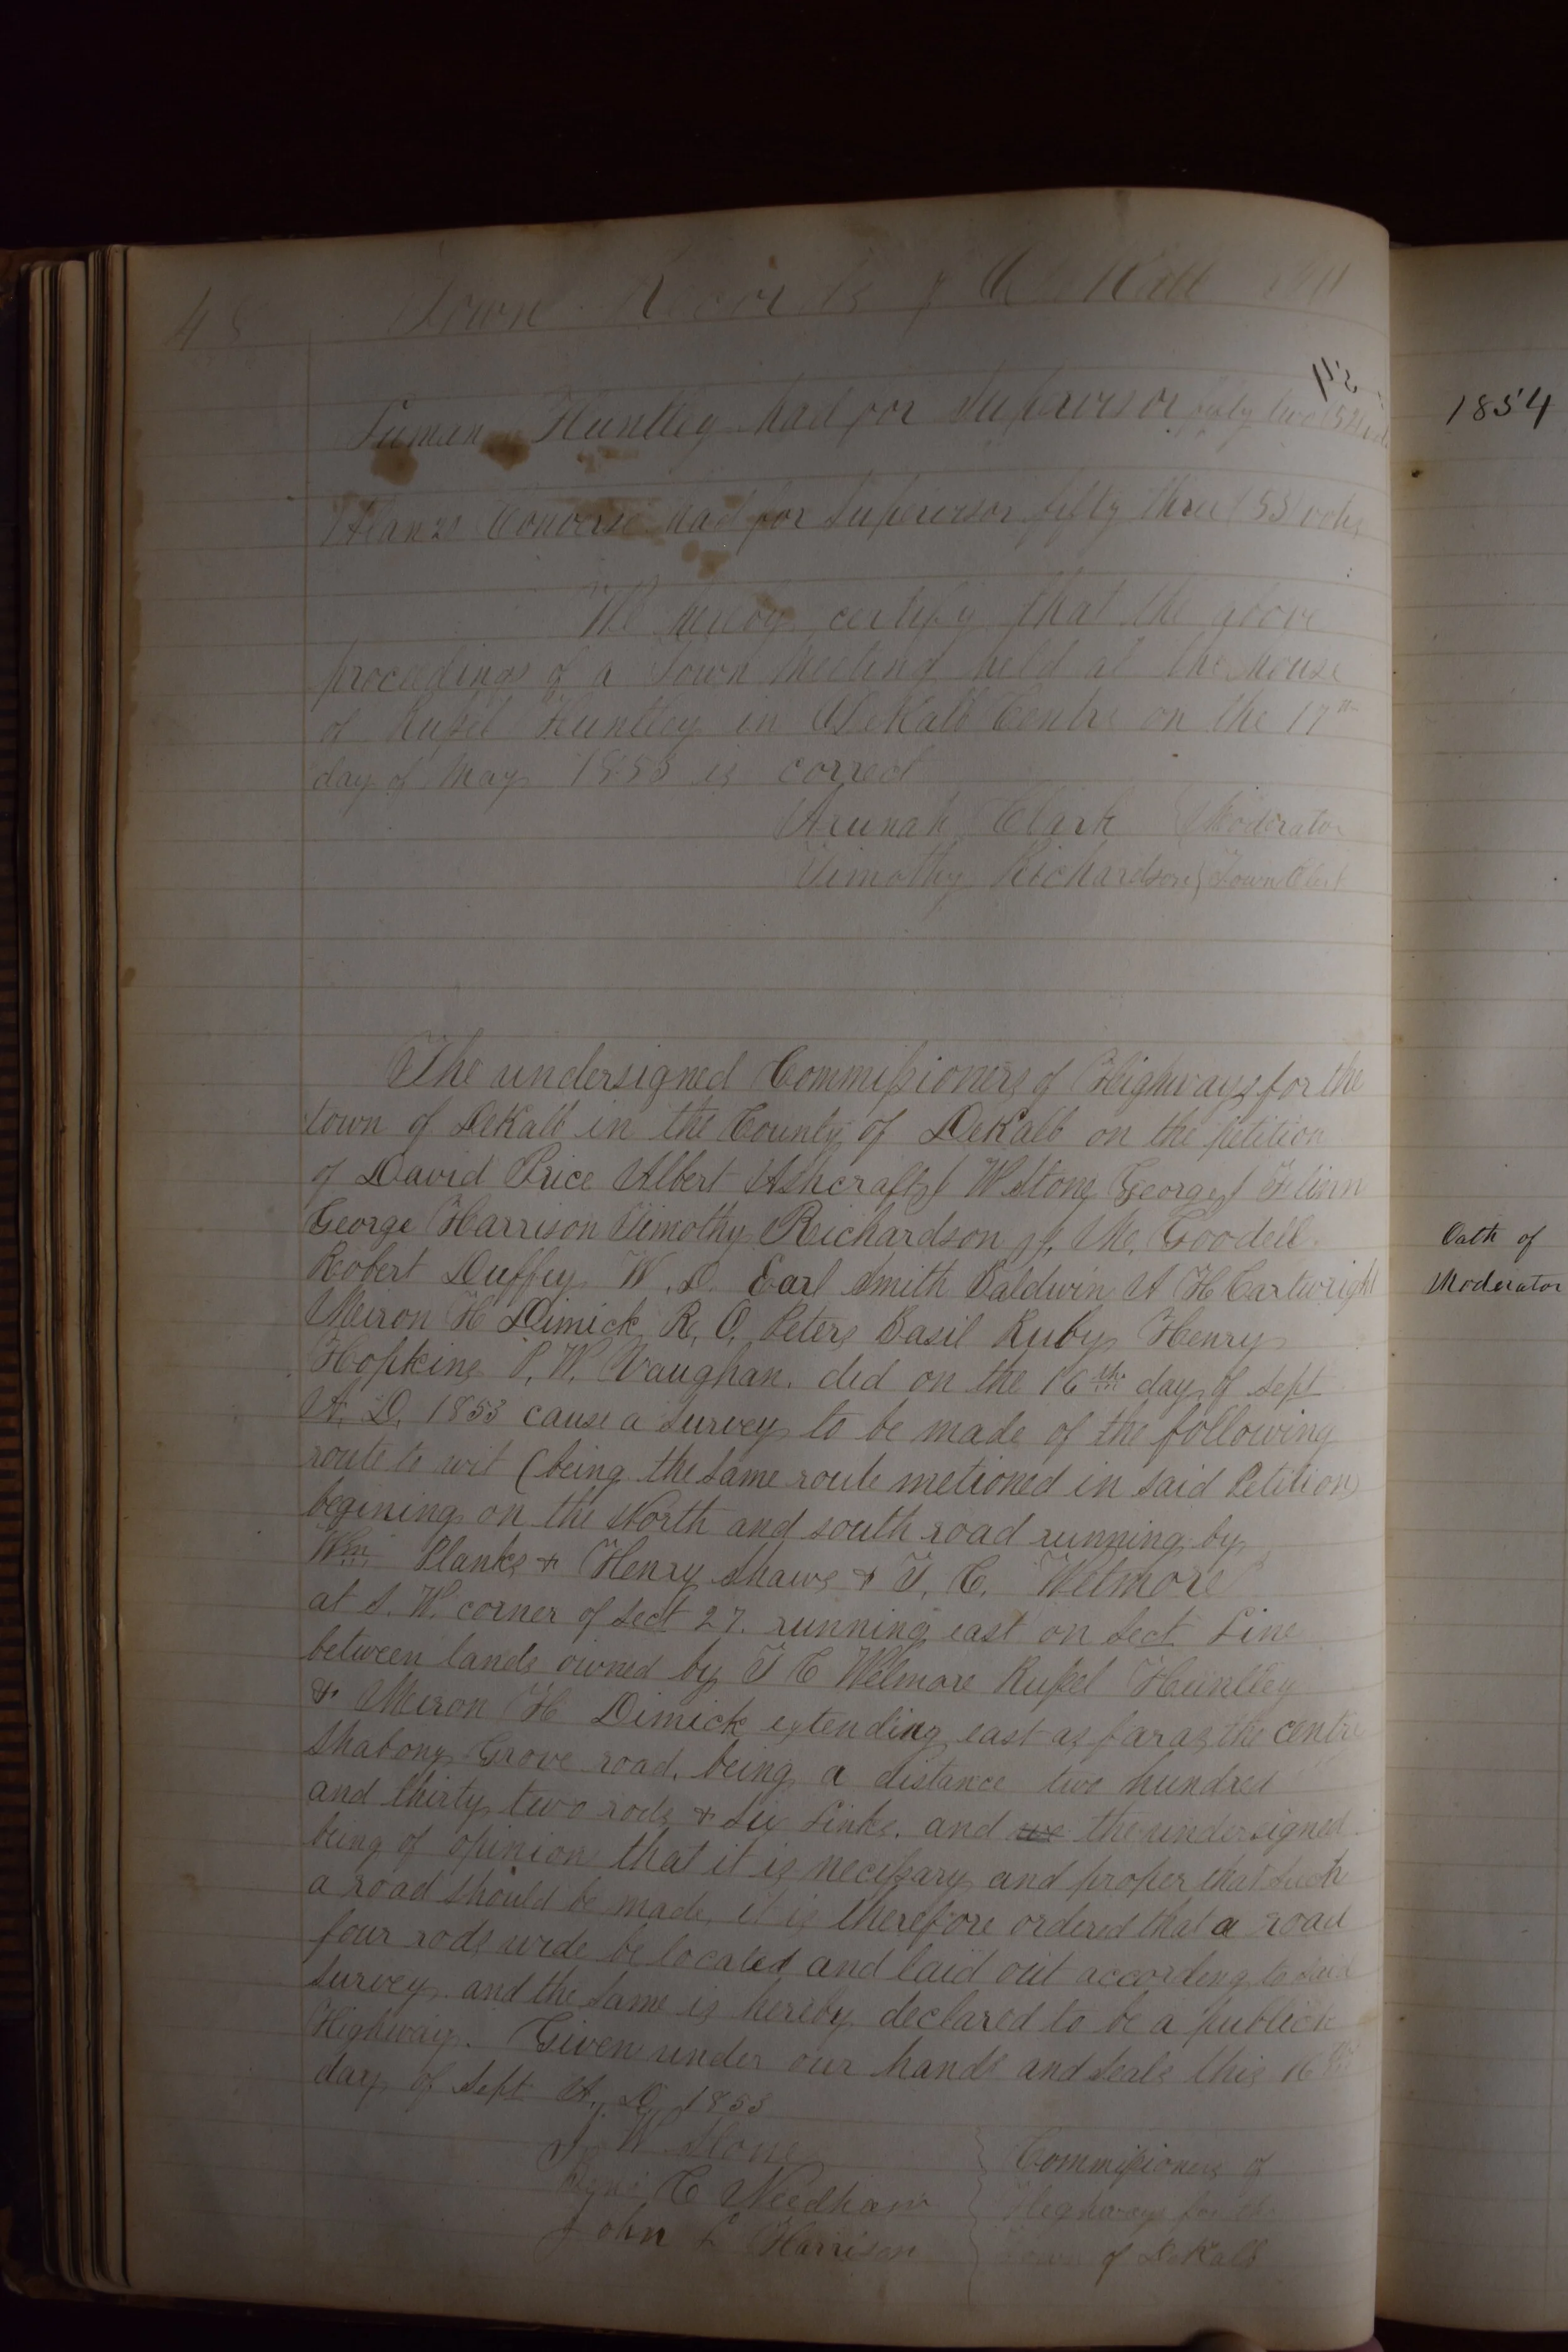 48 Town Records of DeKalb
Huntley had for Supervisor fifty two (52)
Alanzo Converse had for Supervisor fifty three (53) votes
We hereby certify that the above
proceedings of a Town Meeting held at the house
of Rufsel Huntley in DeKalb Centre on the 17th
day of May 1853 is correct
Arunah Clark } Moderator
Timothy Richardson } Town Clerk
The undersigned Commifsioners of Highways for the
town of DeKalb in the County of DeKalb on the petition
of David Price Albert Ashcraft J W Stone George J Flinn
George Harrison Timothy Richardson M. Goodell
Robert Duffey W. D. Earl Smith Baldwin A H Cartwright
Meiron H Dimick R. O. Peters Basil Ruby Henry
Hopkins P. W. Vaughan. did on the 16th day of Sept
A. D. 1853 cause a Survey to be made of the following
route to wit (being the same route metioned in said Petition)
begining on the North and south road running by
Wm Planks + Henry Shaws + T. C. Wetmore
at S. W. corner of Sect 27. running east on Sect Line
between lands owned by T C Wetmore Rufsel Huntley
+ Meiron H Dimick extending east as far as the centre
Shabony Grove road, being a distance two hundred
and thirty two rods + Six Links. and we the undersigned
being of opinion that it is necefsary and proper that such
a road should be made, it is therefore ordered that a road
four rods wide be located and laid out according to said
Survey. and the same is hereby declared to be a publick
Highway. Given under our hands and Seals this 16th
day of Sept A. D. 1853
J W Stone } Commifsioners of
C Needham } Highways for the
John L Harrison } Town of DeKalb
1854
Oath of
Moderator